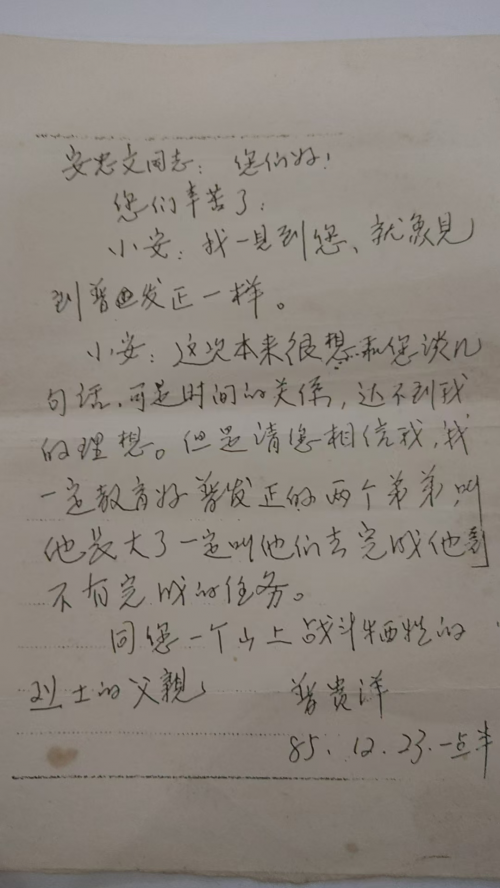 安忠文同志：您们好！
您们辛苦了：
小安：我一见到您、就象见
到普发正一样。
小安：这次本来很想和您谈几
句话、可是时间的关係，达不到我
的理想。但是请您相信我，我
一定教育好普发正的两个弟弟，叫
他长大了一定叫他们去完成他哥
不有完成的任务。
同您一个山上战斗牺牲的
烈士的父親
普贵洋
85.12.23.一点半